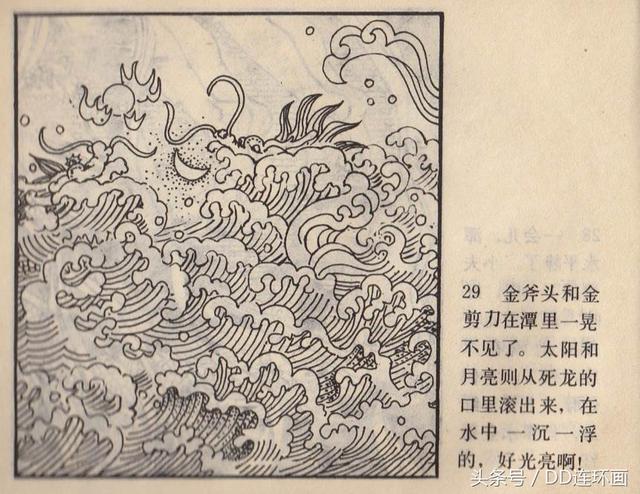 29 金斧头和金
剪刀在潭里一晃
不见了。太阳和
月亮则从死龙的
口里滚出来，在
水中一沉一浮
的，好光亮啊！
头条号／DD连环画